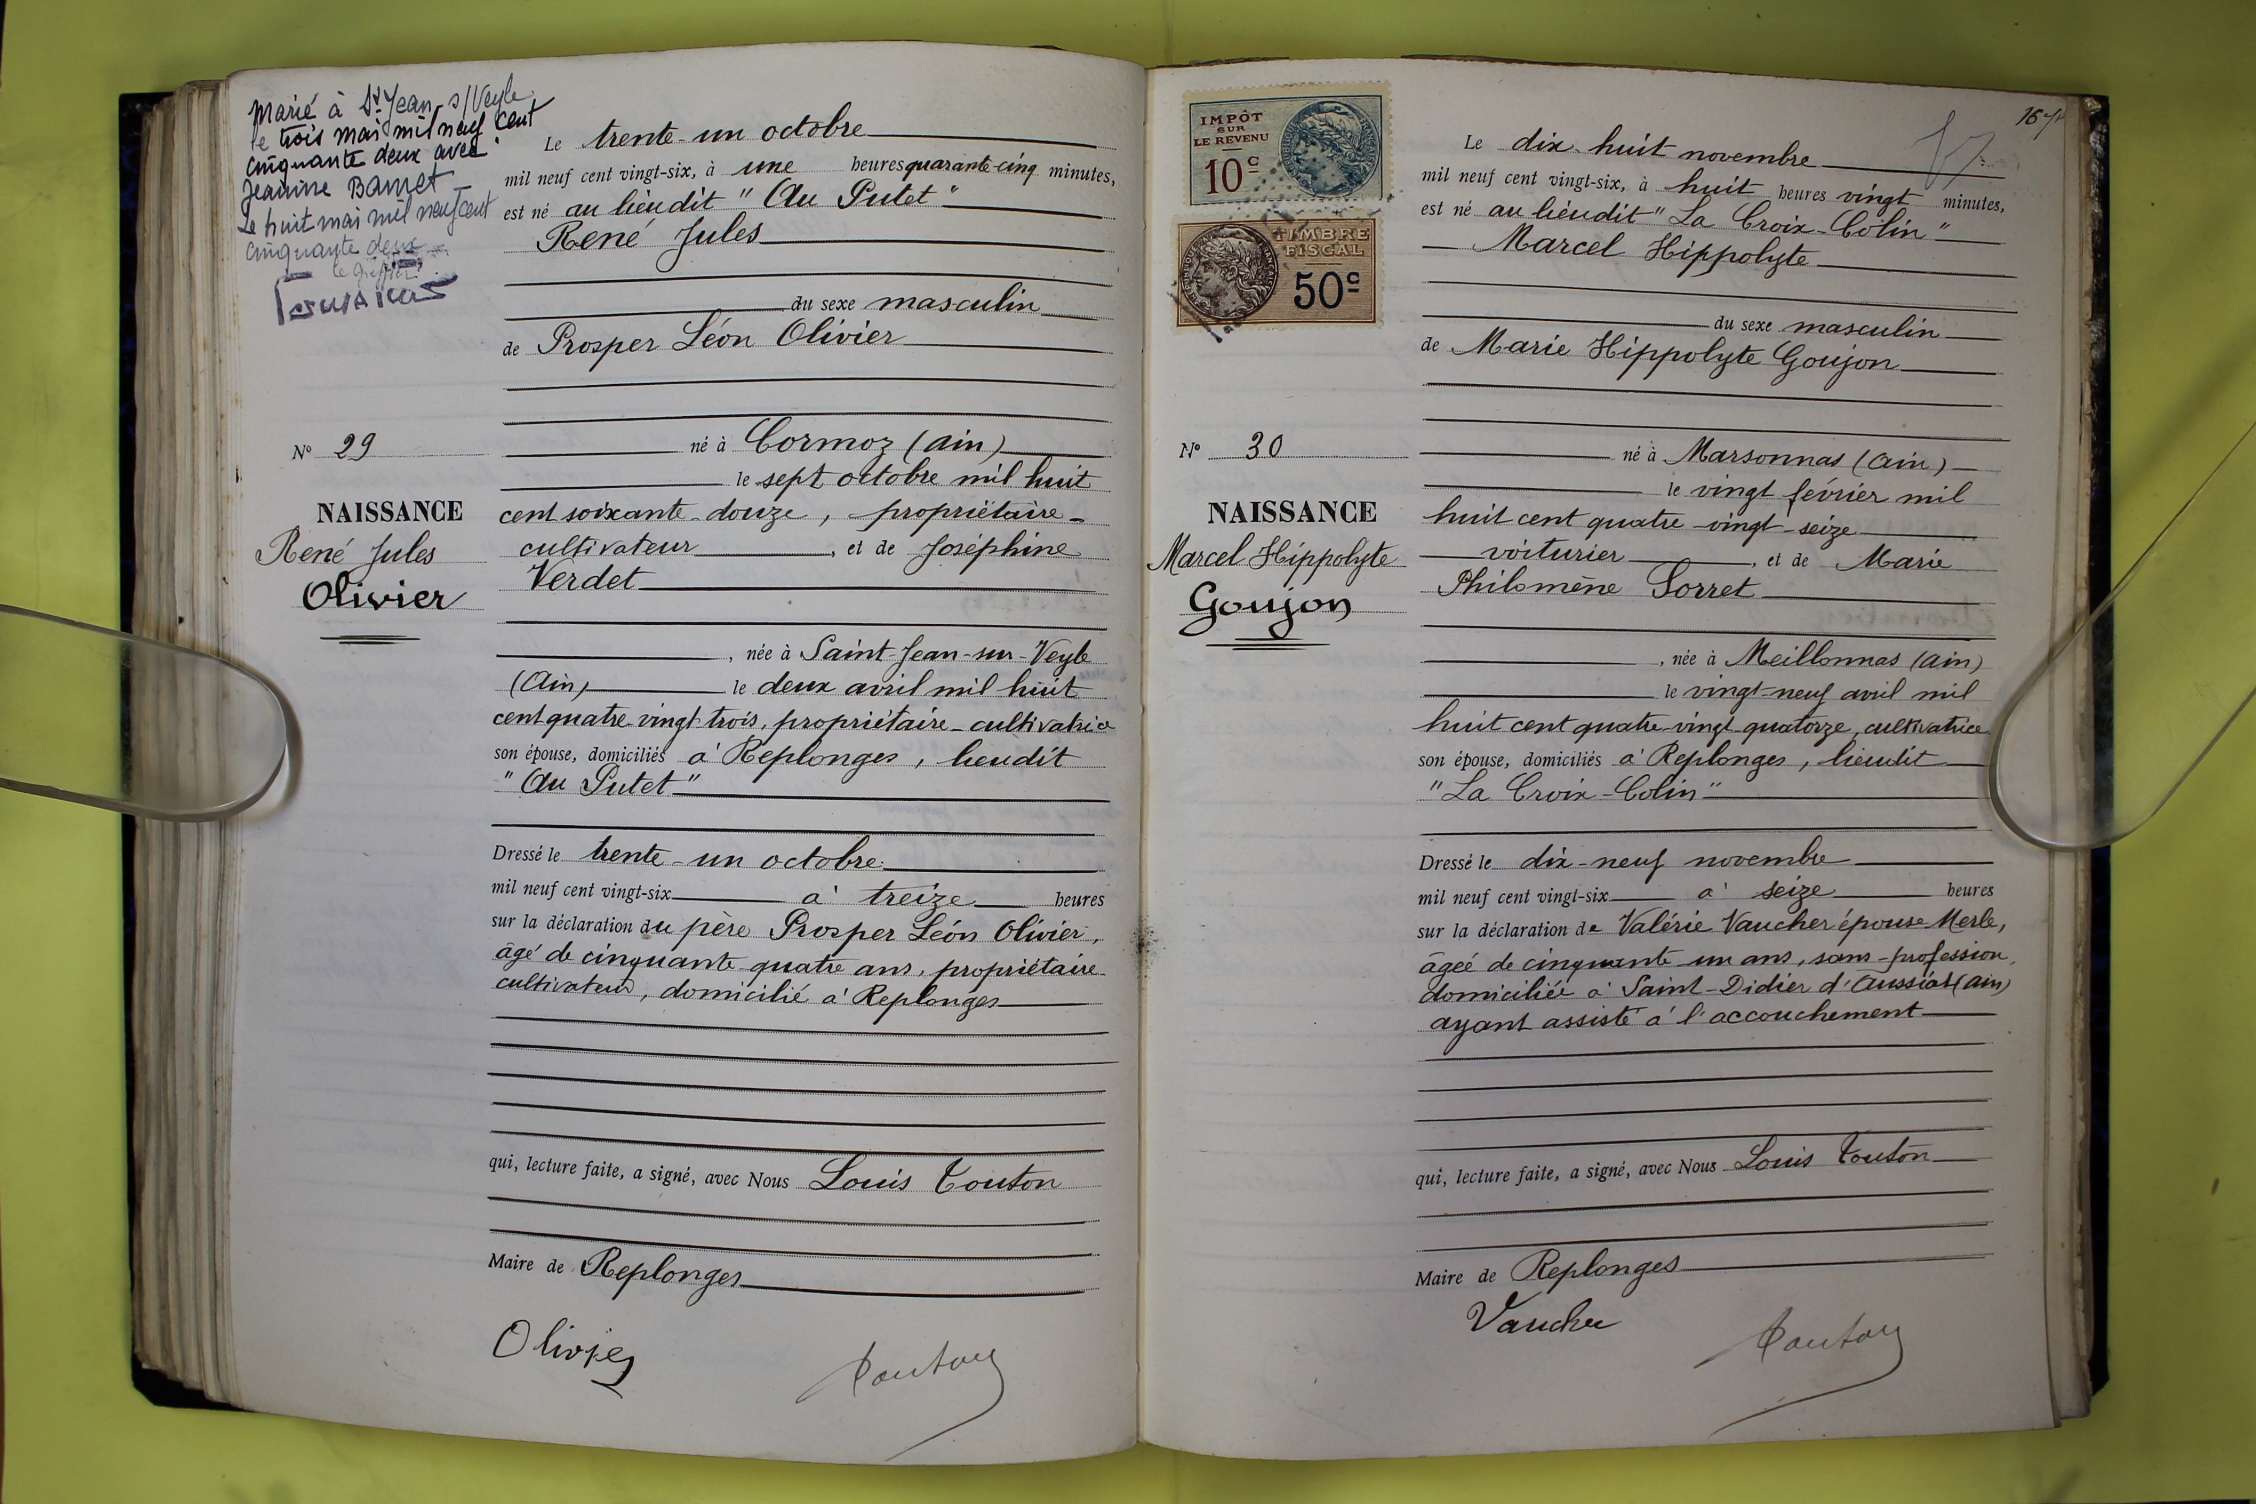 Marié à St Jean s/Veyle
le trois mai mil neuf cent
cinquante deux avec
Jeanine
Le huit mai mil neuf cent
cinquante deux
le greffier
Le trente-un octobre
mil neuf cent vingt-six, à une heures quarante-cinq minutes,
est né au lieudit "Au Putet"
René Jules
du sexe masculin
de Prosper Léon Olivier
né à Cormoz (Ain)
le sept octobre mil huit
cent soixante-douze, propriétaire-
cultivateur, et de Joséphine
Verdet
, née à Saint-Jean-sur-Veyle
(Ain) le deux avril mil huit
cent quatre-vingt trois, propriétaire-cultivatrice
son épouse, domiciliés à Replonges, lieudit
"Au Putet"
Dressé le trente-un octobre
mil neuf cent vingt-six à treize heures
sur la déclaration du père Prosper Léon Olivier,
âgé de cinquante-quatre ans, propriétaire-
cultivateur, domicilié à Replonges
qui, lecture faite, a signé, avec Nous Louis Touton
Maire de Replonges
Olivier
Touton
N° 29
NAISSANCE
René Jules
Olivier
IMPÔT
SUR
LE REVENU
10c
TIMBRE
FISCAL
50c
N° 30
NAISSANCE
Marcel Hippolyte
Goujon
Le dix-huit novembre
mil neuf cent vingt-six, à huit heures vingt minutes,
est né au lieudit "La Croix-Colin"
Marcel Hippolyte
du sexe masculin
de Marie Hippolyte Goujon
né à Marsonnas (Ain)
le vingt février mil
huit cent quatre-vingt-seize
voiturier, et de Marie
Philomène Sorret
, née à Meillonnas (Ain)
le vingt-neuf avril mil
huit cent quatre-vingt-quatorze, cultivatrice
son épouse, domiciliés à Replonges, lieudit
"La Croix-Colin"
Dressé le dix-neuf novembre
mil neuf cent vingt-six à seize heures
sur la déclaration de Valérie Vaucher épouse Merle,
âgée de cinquante-un ans, sans profession,
domiciliée à Saint-Didier d'Aussiat (Ain)
ayant assisté à l'accouchement
qui, lecture faite, a signé, avec Nous Louis Touton
Maire de Replonges
Vaucher
Touton